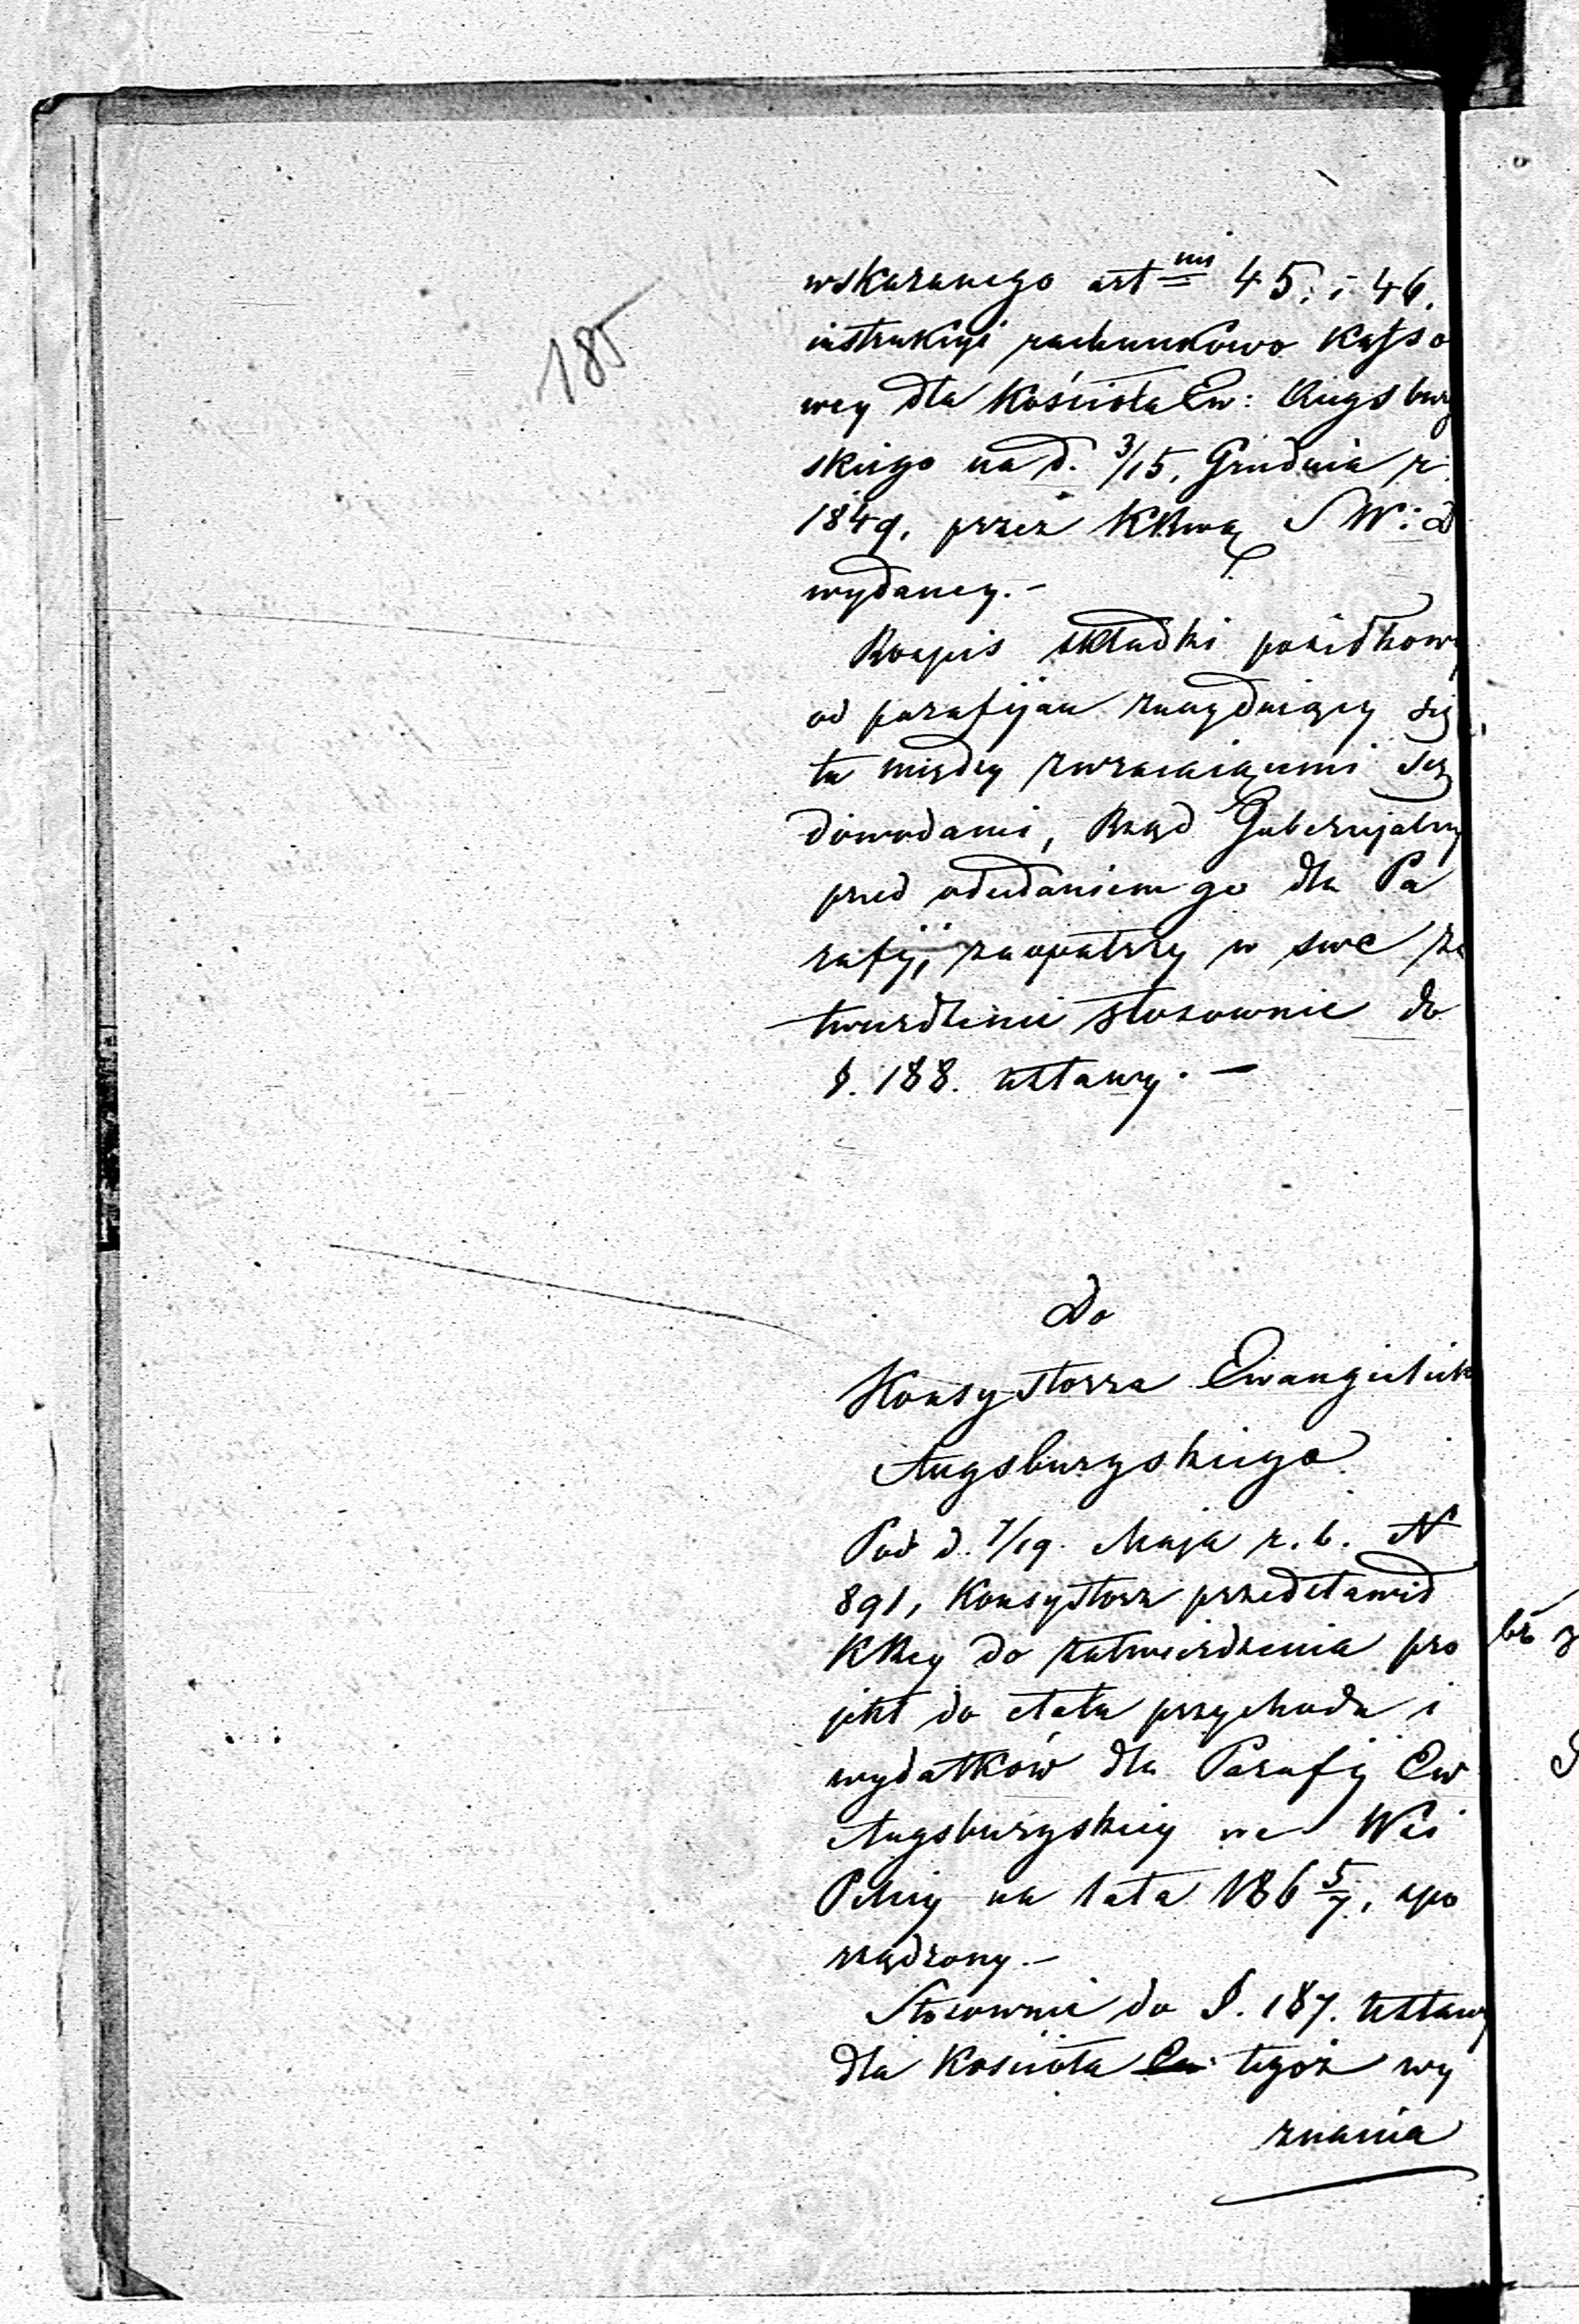 185
wskazanego art mi 45. i 46.
instrukcyi rachunkowo Kasso
wey dla Kościoła Ew: Augsburg
skiego na d. 3/15. Grudnia r.
1849. przez KRwą SW: D
wydaney.-
Rozpis składki posiłkowy
od parafijan znayduiący się
tu między zwracaiącemi się
dowodami, Rząd Gubernijalny
przed odesłaniem go dla Pa
rafij, zaopatrzy w swe za
twierdzenie stosownie do
§. 188. ustawy. —
Do
Konsystorza Ewangielick
Augsburgskiego
Pod d. 7/19. Maja r. b. N
891, Konsystorz przedstawił
KRey do zatwierdzenia pro
jekt do etatu przychodu i
wydatków dla Parafij Ew
Augsburgskiey we Wsi
na lata 186 5/7, spo
rządzony.-
Stosownie do §. 187. Ustawy
dla Kościoła Ew: tegoż wy
znania